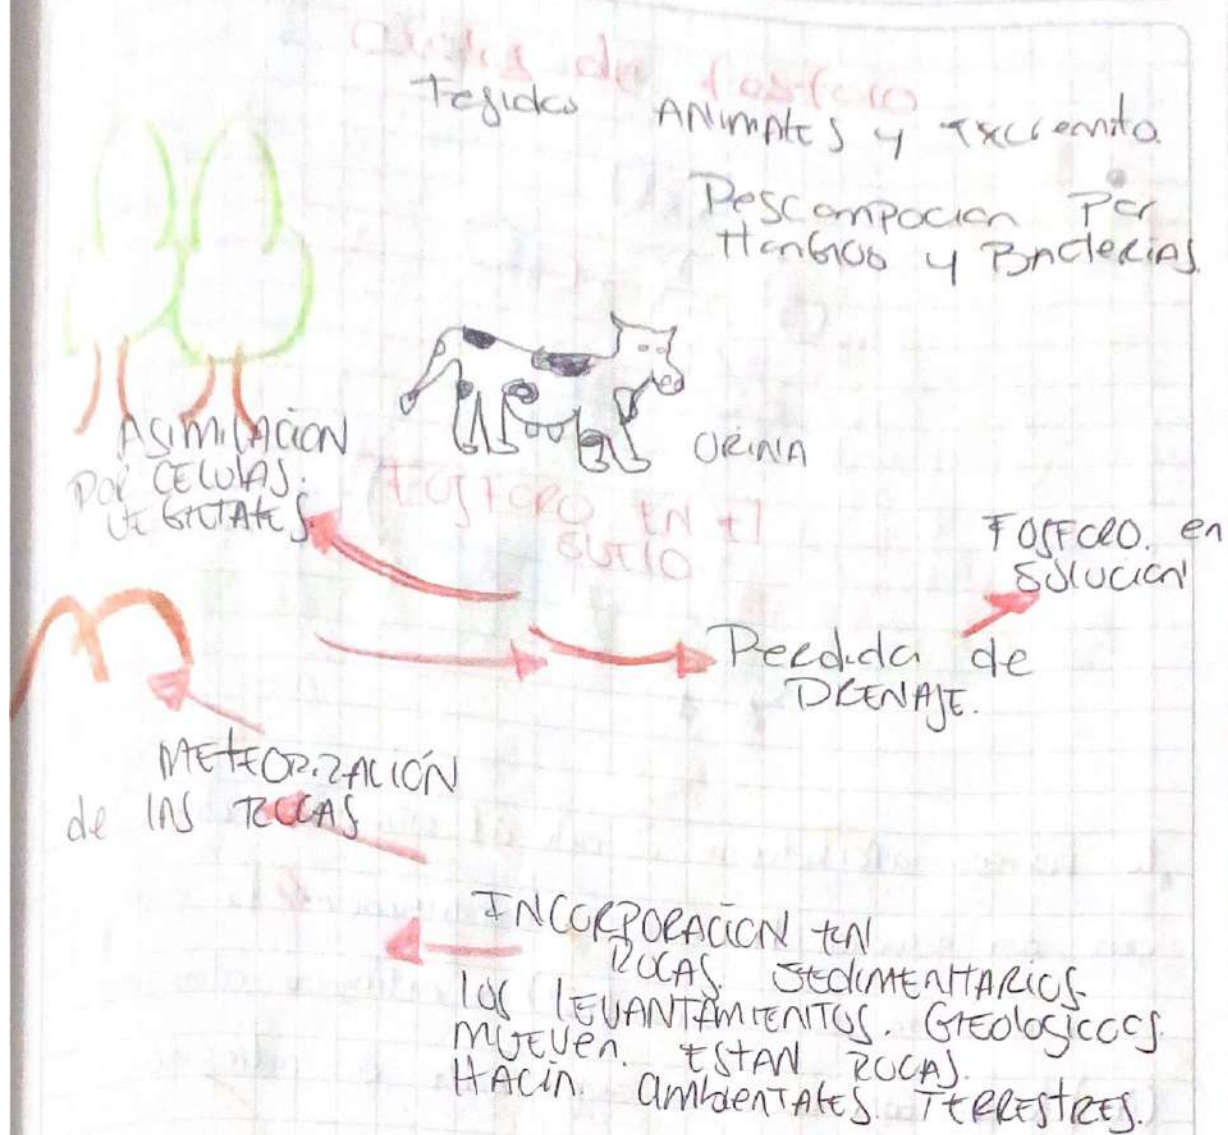 Ciclos de fosforo
Tegidos ANIMAlES y Excremito.
Descompocion Por
Hongios y BActeriAS.
ORINA
ASimilACION
POR CELULAS.
VEGETALES.
FOSFORO EN El
SUELO
FOSFORO. en
Solucion
Perdida de
DRENAJE.
METEORIZACIÓN
de lAS ROCAS
INCORPORACION EN
ROCAS. SEDIMENTARIOS.
lOS LEVANTAMIENTOS. GEOlogicocs.
MUEVEn. ESTAN ROCAS.
HACIN. AmbienTAlES. TERRESTRES.